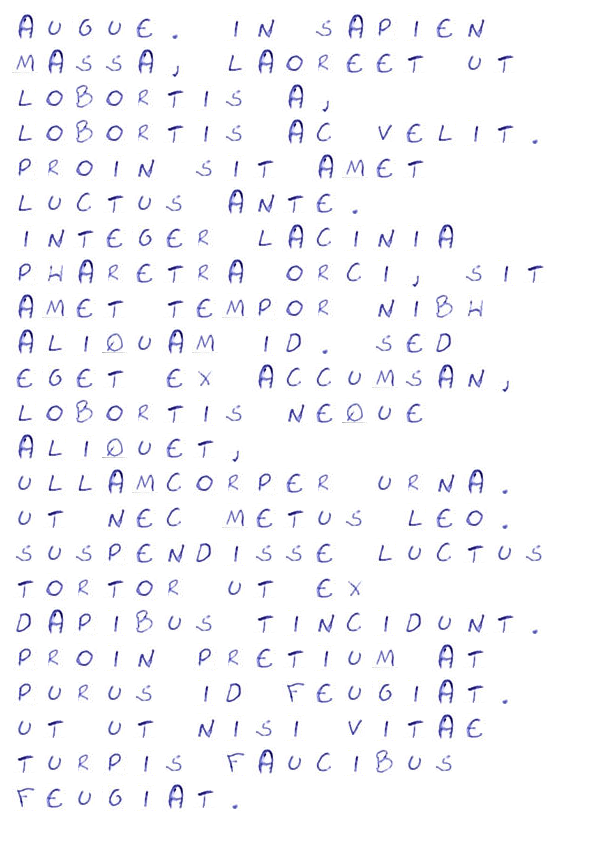 AUGUE. IN SAPIEN
MASSA, LAOREET UT
LOBORTIS A,
LOBORTIS AC VELIT.
PROIN SIT AMET
LUCTUS ANTE.
INTEGER LACINIA
PHARETRA ORCI, SIT
AMET TEMPOR NIBH
ALIQUAM ID. SED
EGET EX ACCUMSAN,
LOBORTIS NEQUE
ALIQUET,
ULLAMCORPER URNA.
UT NEC METUS LEO.
SUSPENDISSE LUCTUS
TORTOR UT EX
DAPIBUS TINCIDUNT.
PROIN PRETIUM AT
PURUS ID FEUGIAT.
UT UT NISI VITAE
TURPIS FAUCIBUS
FEUGIAT.